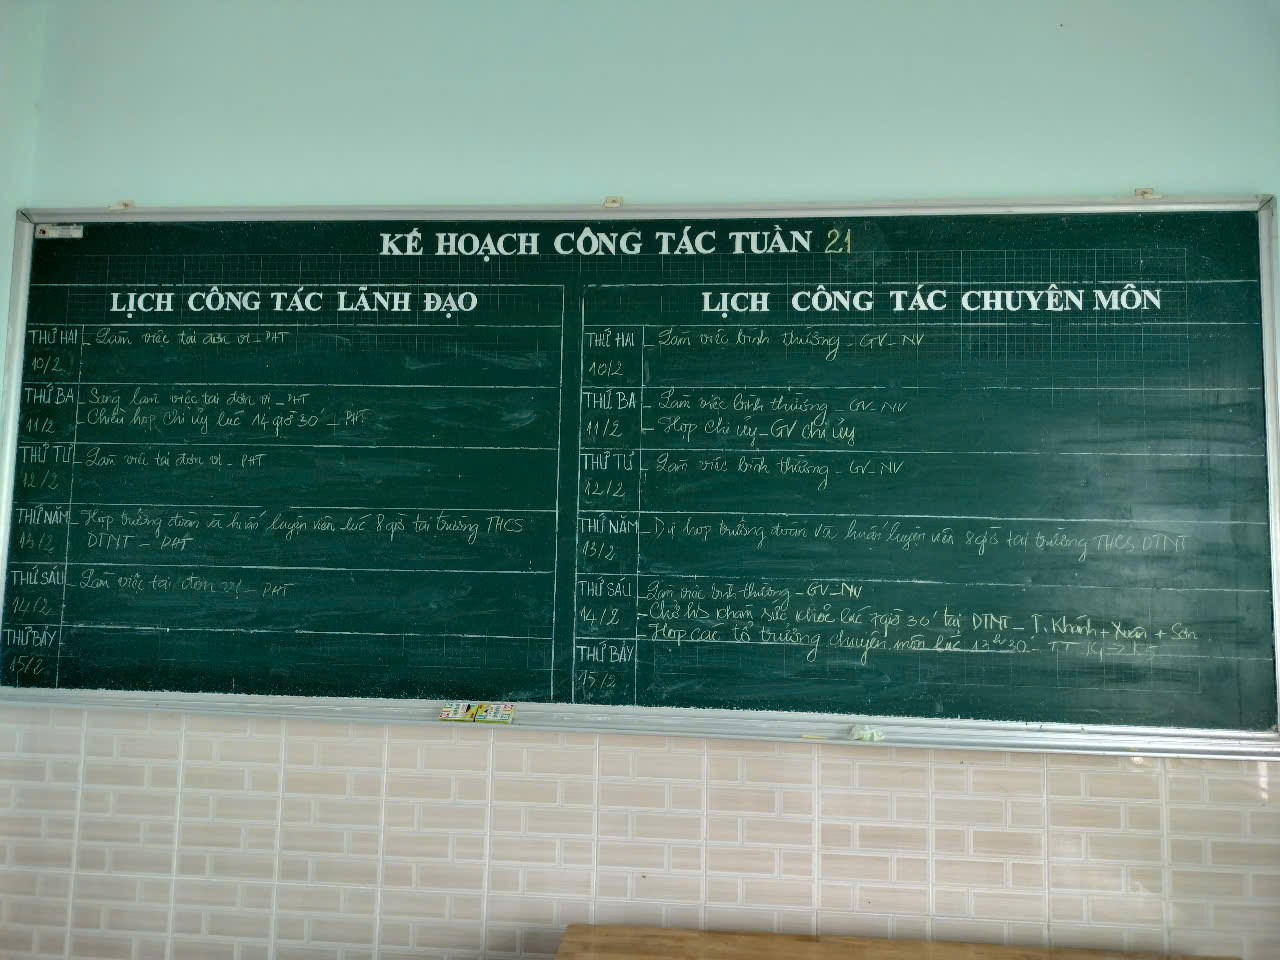 KẾ HOẠCH CÔNG TÁC TUẦN 21
LỊCH CÔNG TÁC LÃNH ĐẠO
THỨ HAI - Làm việc tại đơn vị - PHT
10/2
THỨ BA - Sáng làm việc tại đơn vị - PHT
- Chiều họp chi ủy lúc 14 giờ 30' - PHT
11/2
THỨ TƯ - Làm việc tại đơn vị - PHT
12/2
THỨ NĂM - Họp trưởng đoàn và huấn luyện viên lúc 8 giờ tại trường THCS
13/2 DTNT - PHT
THỨ SÁU - Làm việc tại đơn vị - PHT
14/2
THỨ BẢY -
15/2
LỊCH CÔNG TÁC CHUYÊN MÔN
THỨ HAI - Làm việc bình thường - GV - NV
10/2
THỨ BA - Làm việc bình thường - GV - NV
11/2 - Họp Chi ủy - GV chi ủy
THỨ TƯ - Làm việc bình thường - GV - NV
12/2
THỨ NĂM - Dự họp trưởng đoàn và huấn luyện viên 8 giờ tại trường THCS DTNT
13/2
THỨ SÁU - Làm việc bình thường - GV - NV
14/2 - Chở hs khám sức khỏe lúc 7 giờ 30' tại DTNT - T. Khánh + Xuân + Sơn
- Họp các tổ trưởng chuyên môn lúc 13h30' - TT K1 -> K5
THỨ BẢY
15/2